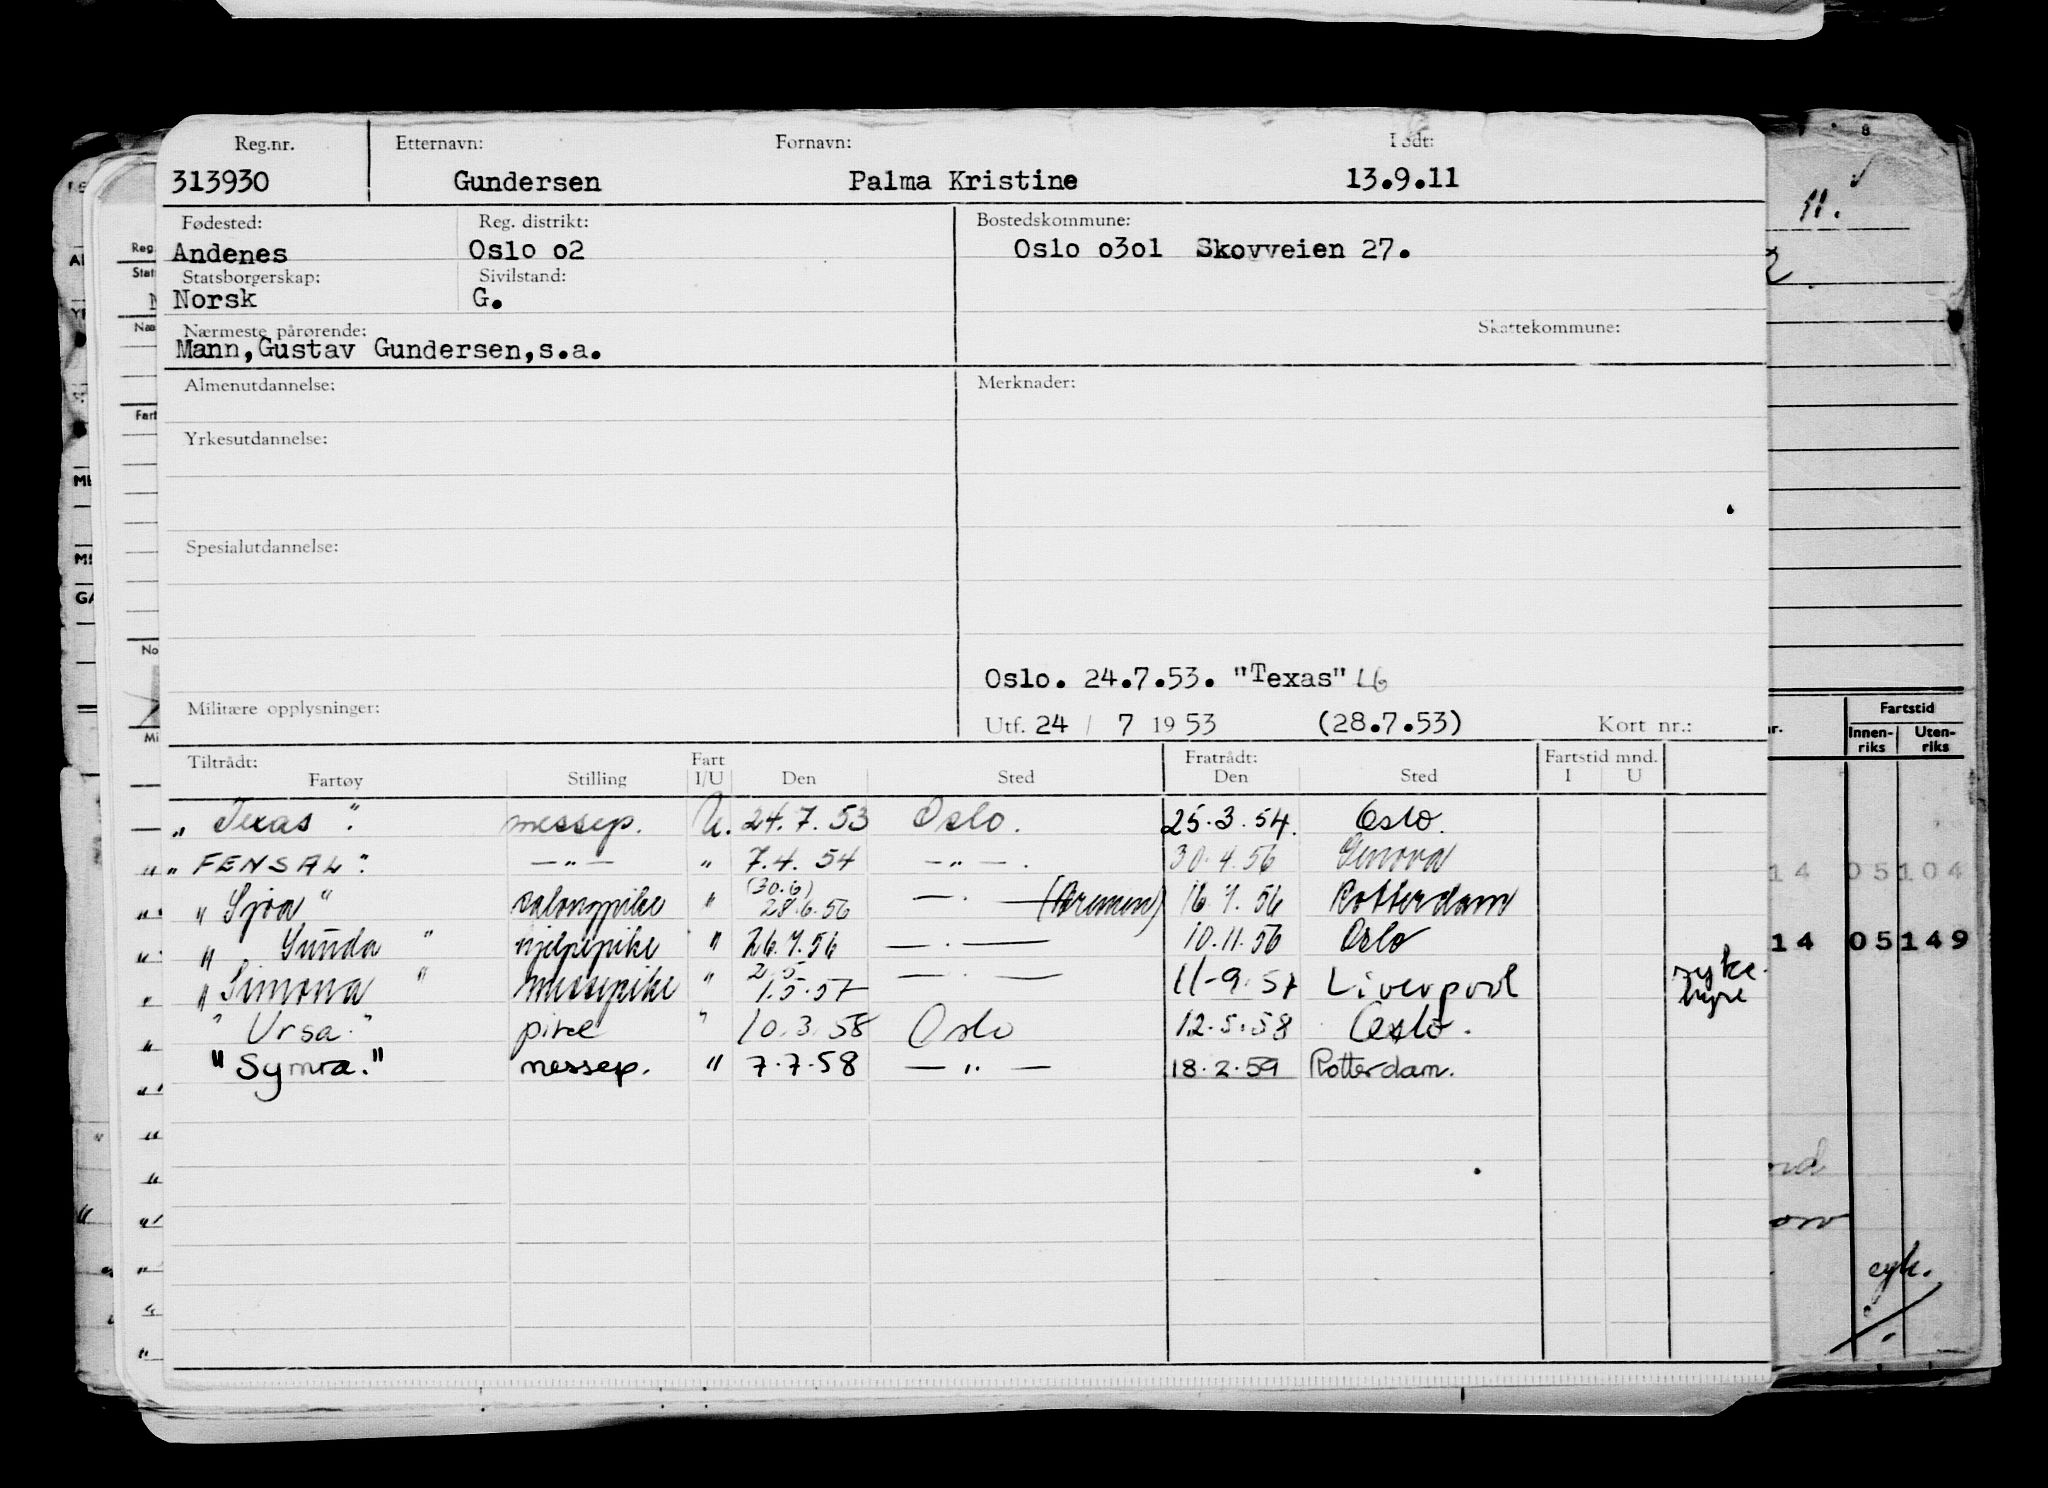 Reg.nr. Etternavn: Fornavn: Født:
313930 Gundersen Palma Kristine 13.9.11
Fødested: Reg. distrikt: Bostedskommune:
Andenes Oslo o2 Oslo o3ol Skovveien 27.
Statsborgerskap: Sivilstand:
Norsk G.
Nærmeste pårørende: Skattekommune:
Mann, Gustav Gundersen, s.a.
Almenutdannelse: Merknader:
Yrkesutdannelse:
Spesialutdannelse:
Oslo. 24.7.53. "Texas" LG
Militære opplysninger: Utf. 24 / 7 1953 (28.7.53) Kort nr.:
Tiltrådt: Fart Fratrådt: Fartstid mnd.
Fartøy Stilling I/U Den Sted Den Sted I U
"Texas". messep. U. 24.7.53 Oslo. 25.3.54. Oslo.
"FENSAL". —"— " 7.4.54 —"—. 30.4.56 Genova
"Sjoa" salongpike " (30.6) 28.6.56 — . — (Bremen) 16.7.56 Rotterdam
"Sunda" hjelpepike " 26.7.56 — . — 10.11.56 Oslo
"Simona" messepike " 2.5 1.5.57 — . — 11-9.57 Liverpool syke hyre
"Ursa." pike " 10.3.58 Oslo 12.5.58 Oslo.
"Symra." messep. " 7.7.58 — " — 18.2.59 Rotterdam.
8
11.
Fartstid
Innen-riks Uten-riks
14 05104
14 05149